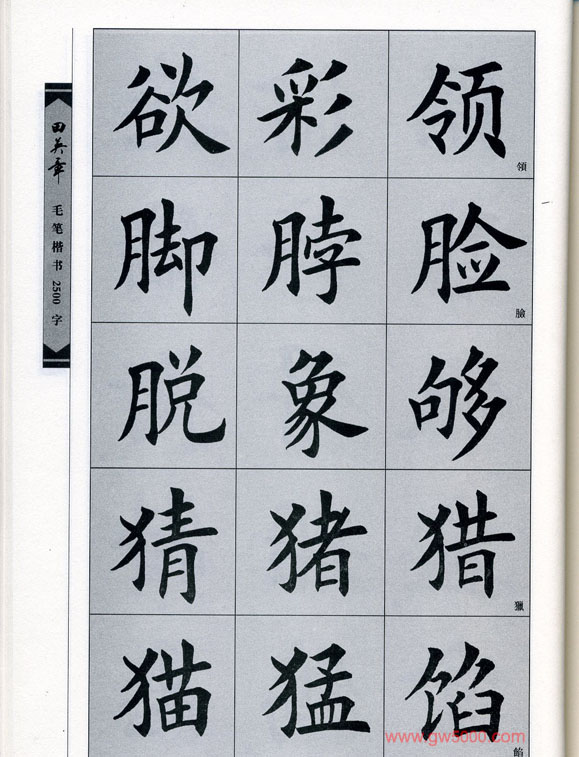 田英章
毛笔楷书2500字
欲彩领
領
脚脖脸
臉
脱象够
猜猪猎
獵
猫猛馅
餡
www.gw5000.com